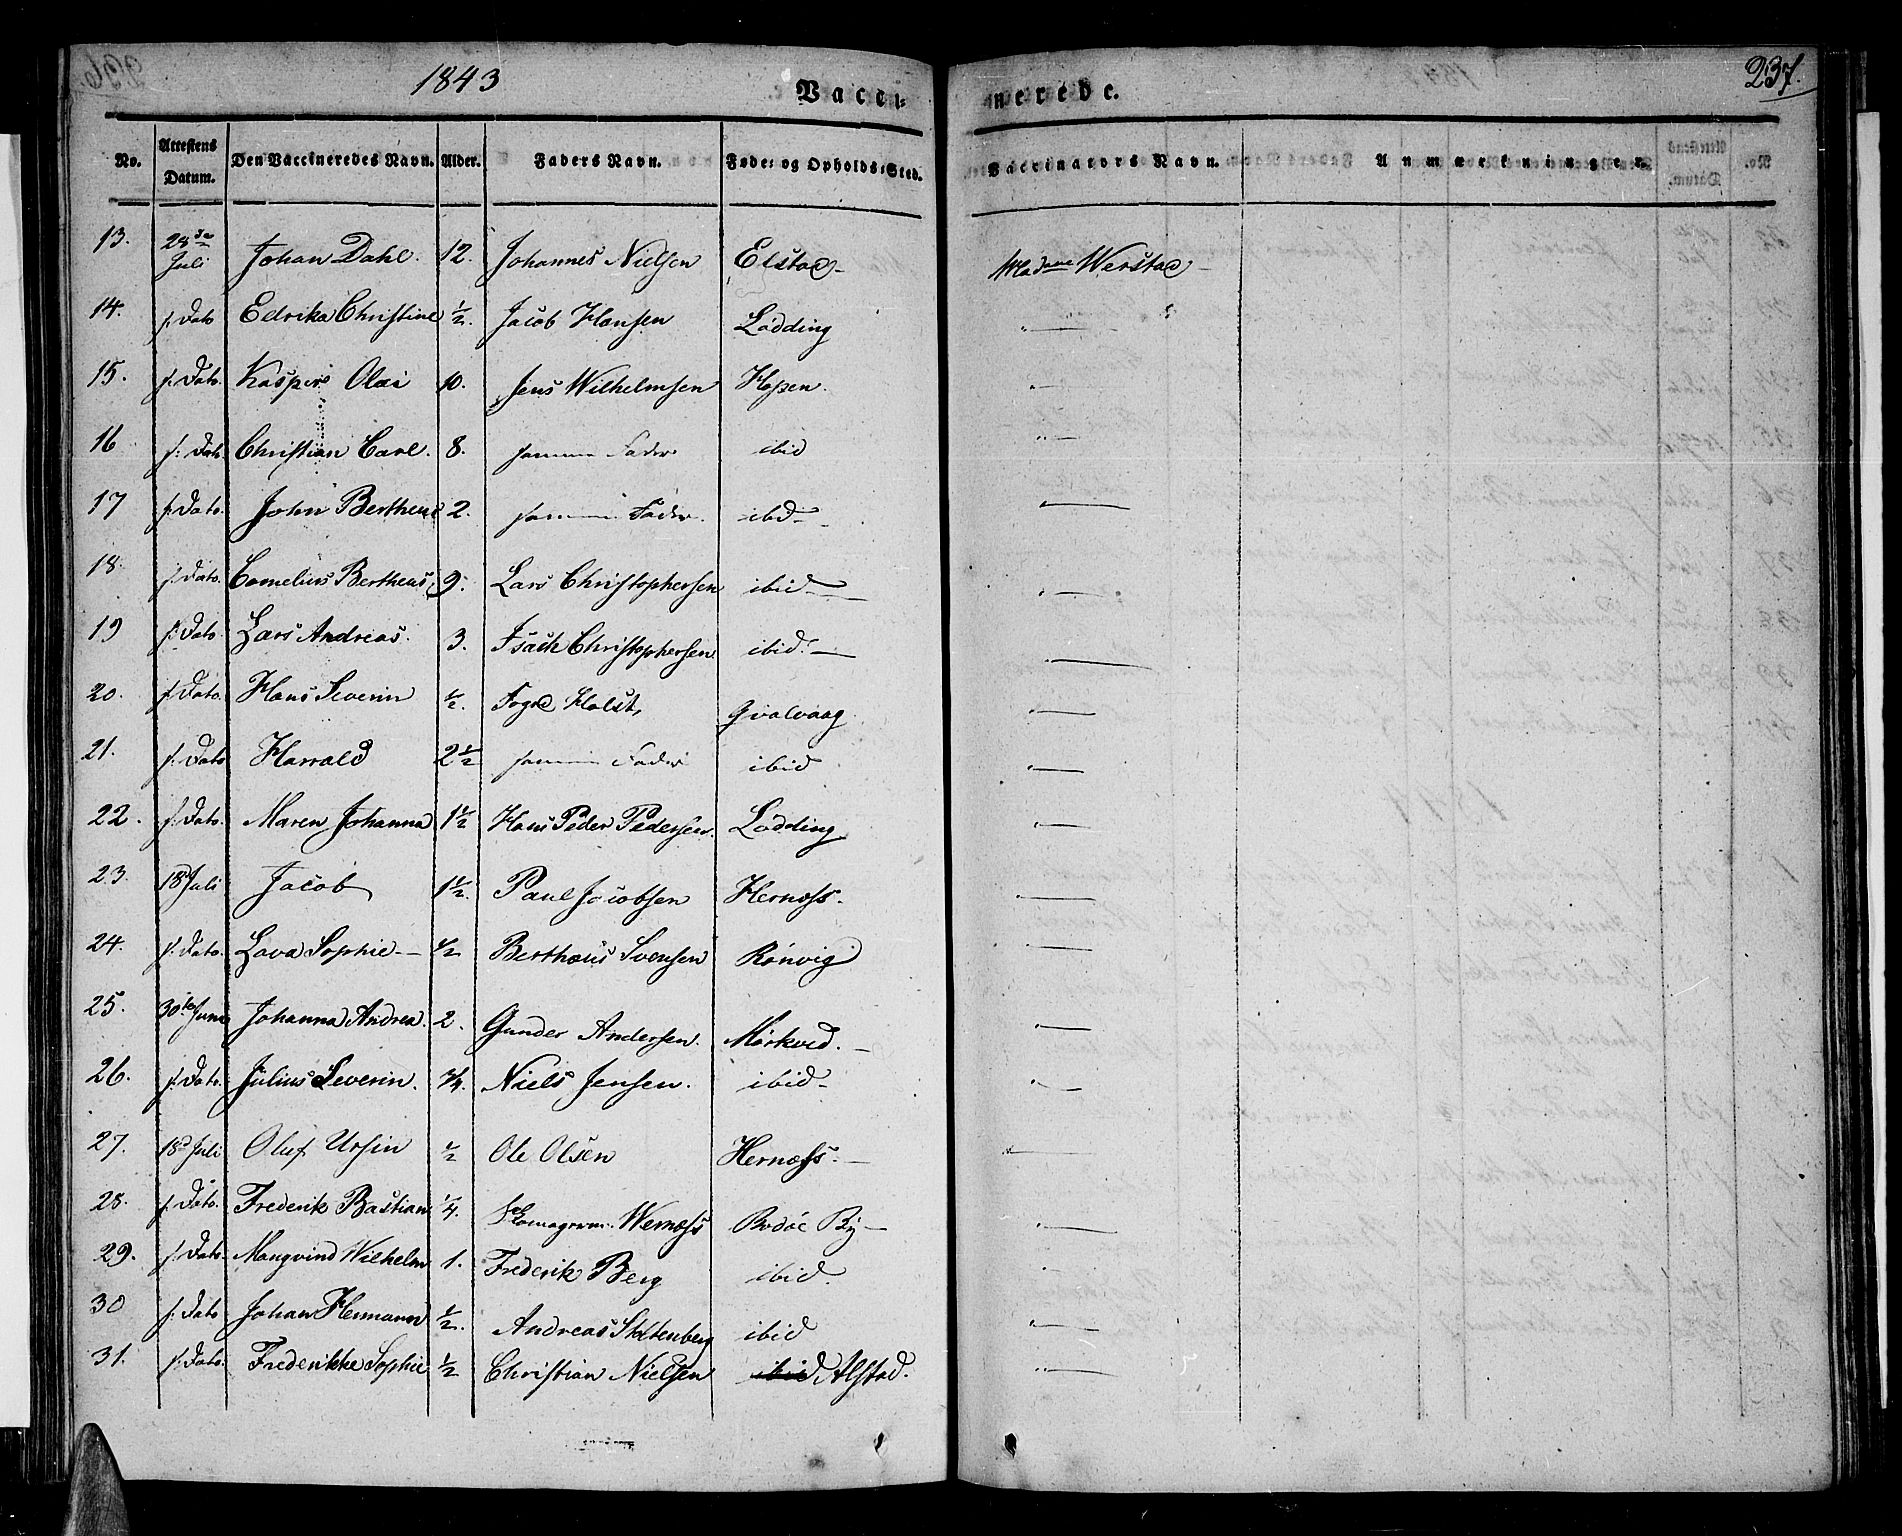 1843 Vacci- nerede. 237.
No. Attestens Datum. Den Vaccineredes Navn. Alder. Faders Navn. Føde- og Opholds-Sted. Vaccinators Navn. Anmærkninger.
13. 28de Juli Johan Dahl. 12. Johannes Nielsen Elstad - Madame Werstad -
14. s. Dato Edrika Christine ½. Jacob Hansen Lødding "
15. s. Dato. Kaspere Olai 10. Jens Wilhelmsen Hopen. "
16 s: Dato Christian Carl. 8. samme Fader ibid "
17 s. Dato. John Bertheus 2. samme Fader. ibid - "
18. s. Dato. Cornelius Bertheus, 9. Lars Christophersen ibid "
19 s. Dato. Lars Andreas. 3. Isach Christophersen. ibid. "
20. s. Dato. Hans Severin ½. Foged Holst, Qvalvaag "
21. s. Dato Harrald 2½ samme Fader ibid "
22. s. Dato. Maren Johanna 1½ Hans Peder Pedersen. Lødding "
23. 18d Juli Jacob 1½. Paul Jacobsen Hernæss. "
24. s. Dato. Lava Sophie - ½ Berthæus Svensen Rønvig "
25. 30te Juni Johanna Andrea. 2. Gunder Andersen. Mørkved. - "
26. s. Dato. Julius Severin. ¾. Niels Jensen. ibid - "
27. 18d Juli Oluf Ursin ½ Ole Olsen Hernæss. - "
28. s. Dato. Frederik Bastian ¼. Skomagerm. Wernæss Bodöe By - "
29. s. Dato Mangvind Wilhelm 1. Frederik Berg ibid "
30 s. Dato Johan Hermann ½. Andreas Stoltenberg ibid "
31. s. Dato. Frederikke Sophie ½ Christian Nielsen ibid Alstad. "